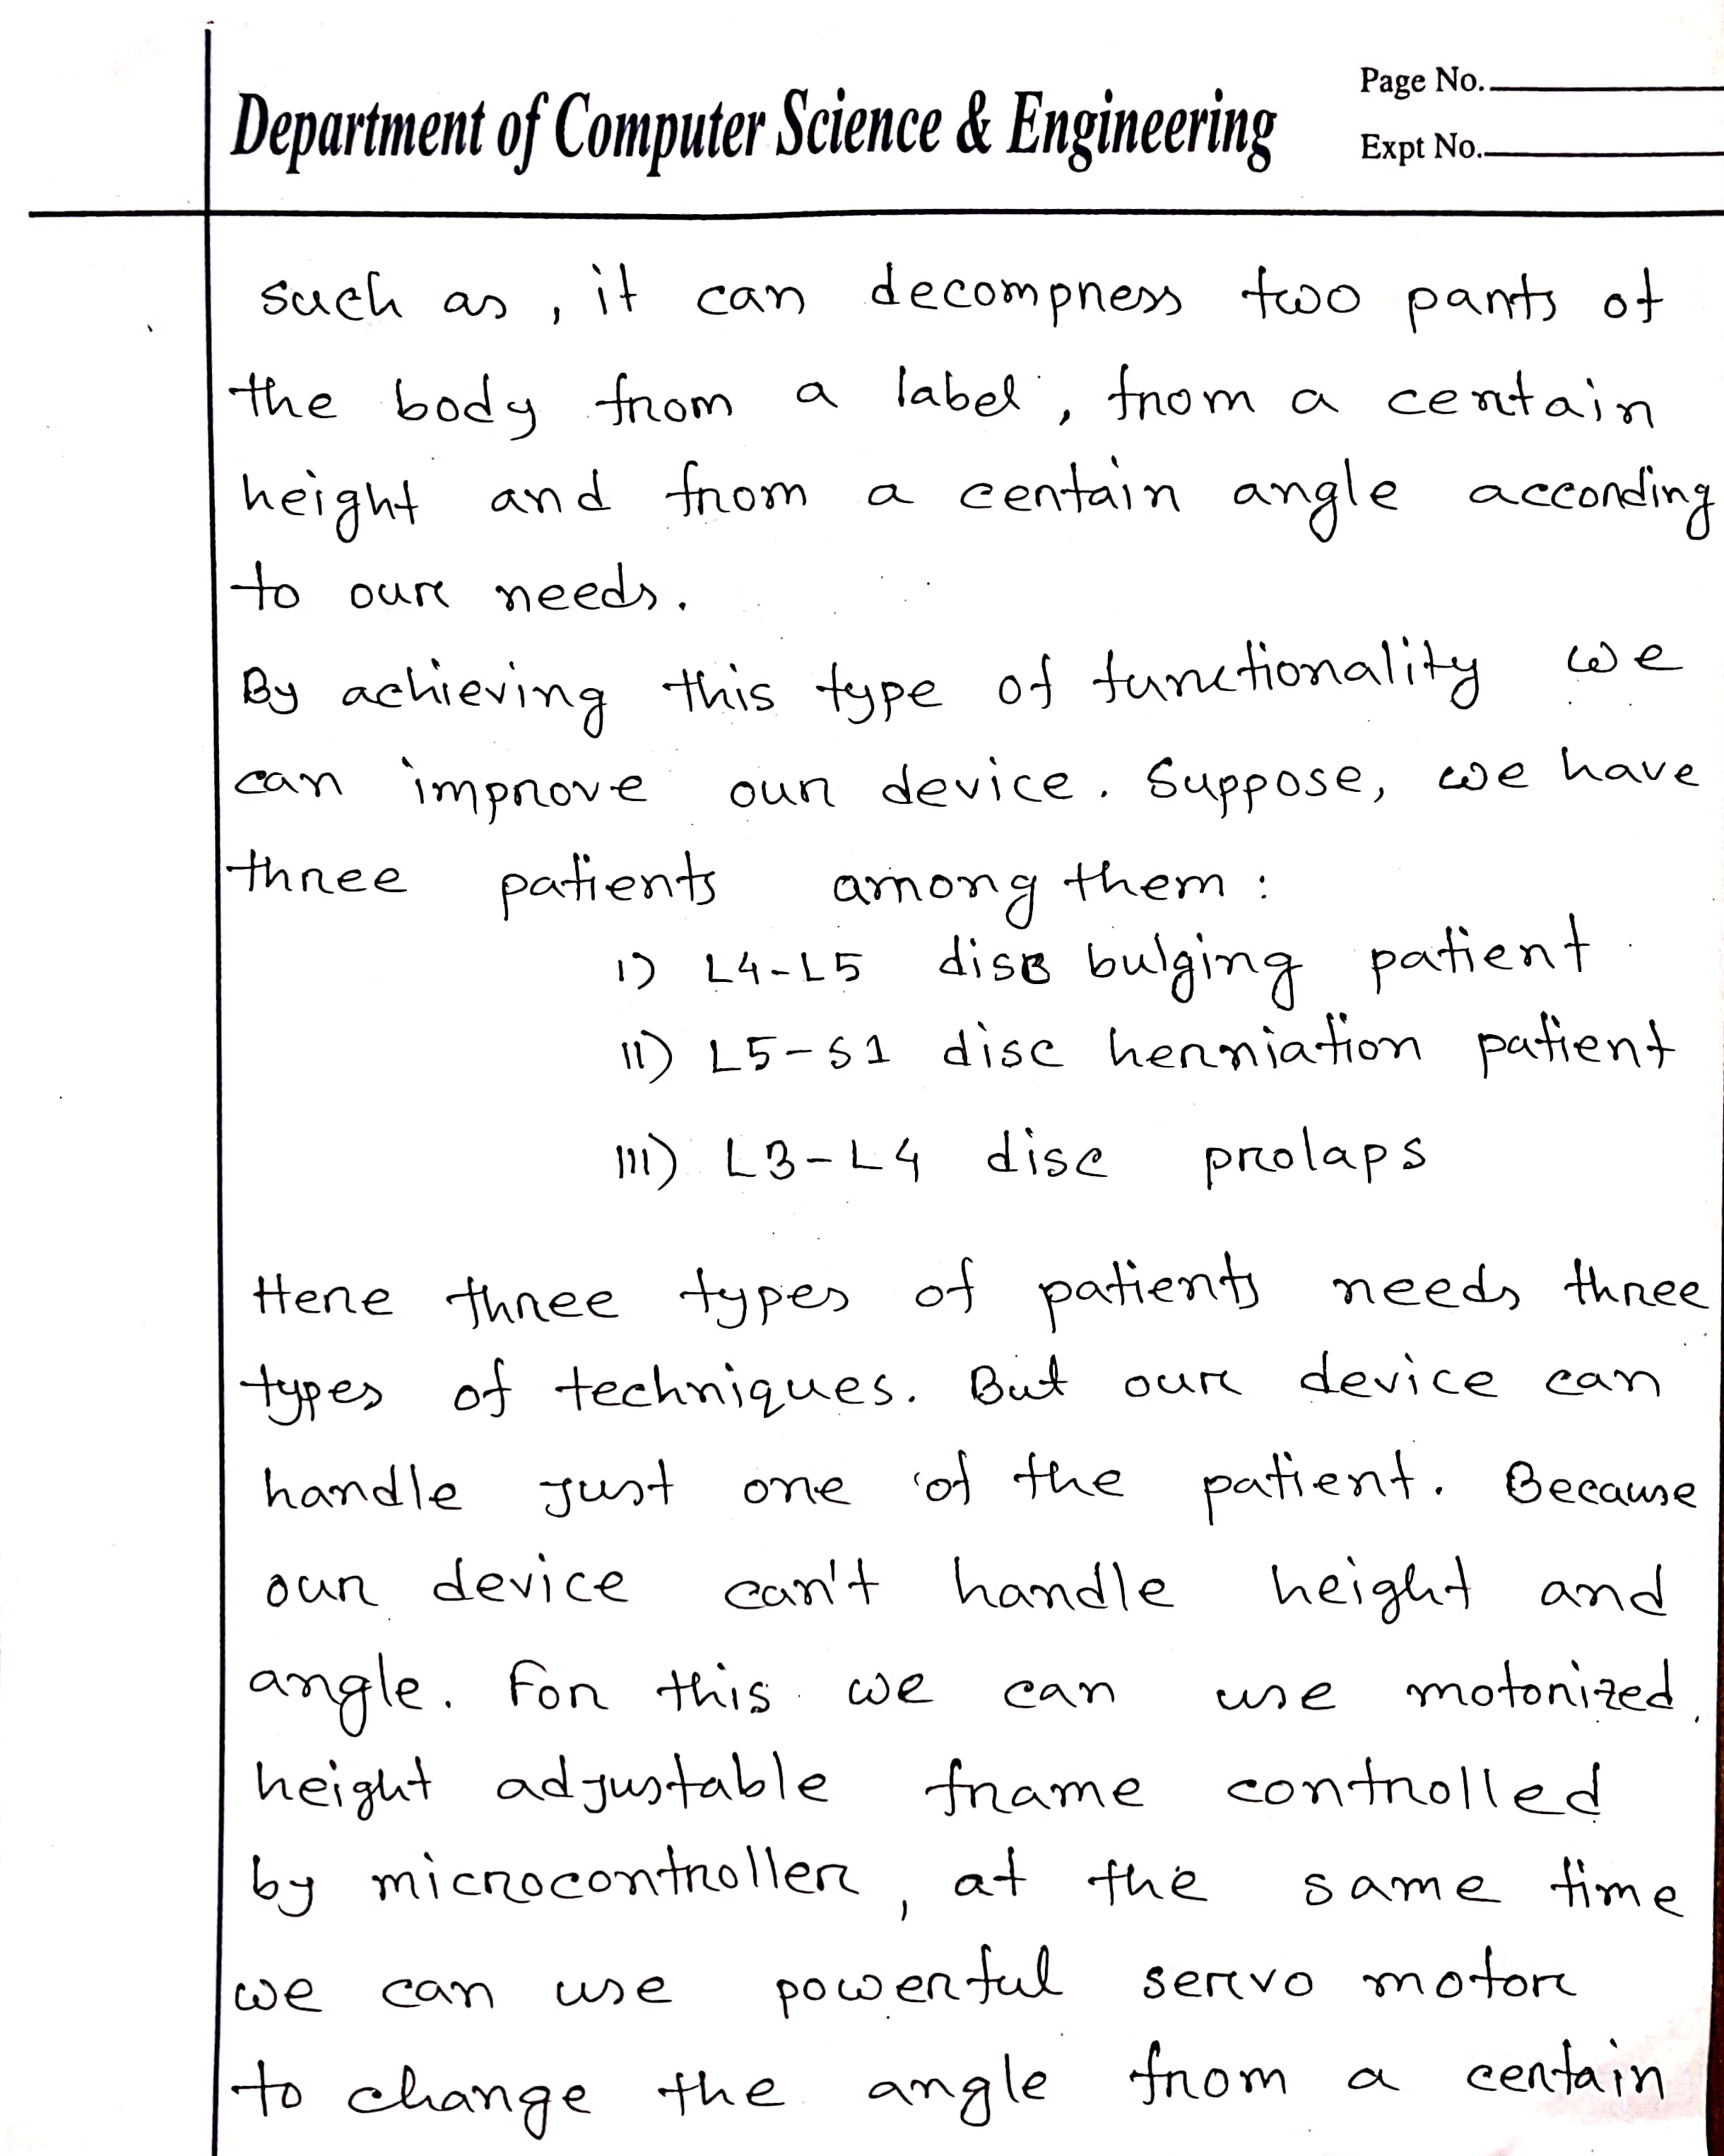 Department of Computer Science & Engineering
Page No.
Expt No.
such as, it can decompress two parts of
the body from a label, from a certain
height and from a certain angle according
to our needs.
By achieving this type of functionality we
can improve our device. Suppose, we have
three patients among them:
i) L4-L5 disc bulging patient
ii) L5-S1 disc herniation patient
iii) L3-L4 disc prolaps
Here three types of patients needs three
types of techniques. But our device can
handle just one of the patient. Because
our device can't handle height and
angle. For this we can use motorized
height adjustable frame controlled
by microcontroller, at the same time
we can use powerful servo motor
to change the angle from a certain